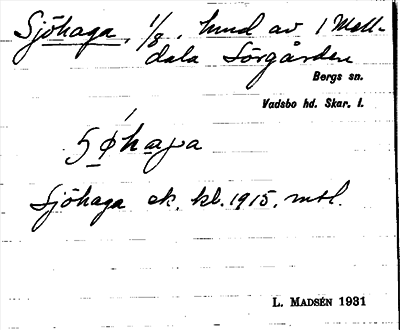 Sjöhaga, 1/8, hmd av 1 Mell-
dala Sörgården
Bergs sn.
Vadsbo hd. Skar. l.
ʃøhaga
Sjöhaga ek. kb. 1915, mtl.
L. MADSÉN 1931